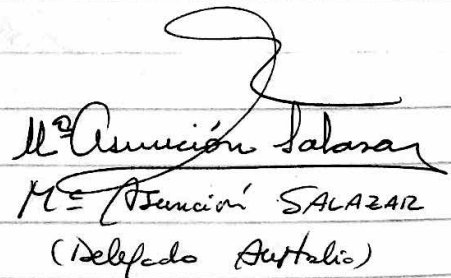 Mª Asunción Salazar
Mª Asunción SALAZAR
(Delegado Australia)